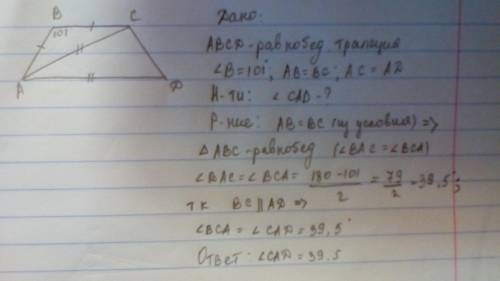 B C
101
A D
Дано:
ABCD-равнобед. трапция
∠B=101°; AB=BC; AC=AD
Н-ти: ∠CAD-?
Р-ние: AB=BC (из условия) =>
△ABC-равнобед (∠BAC=∠BCA)
∠BAC=∠BCA= 180-101/2 = 79/2 = 39,5°;
т.к BC||AD =>
∠BCA=∠CAD=39,5°
Ответ: ∠CAD=39,5